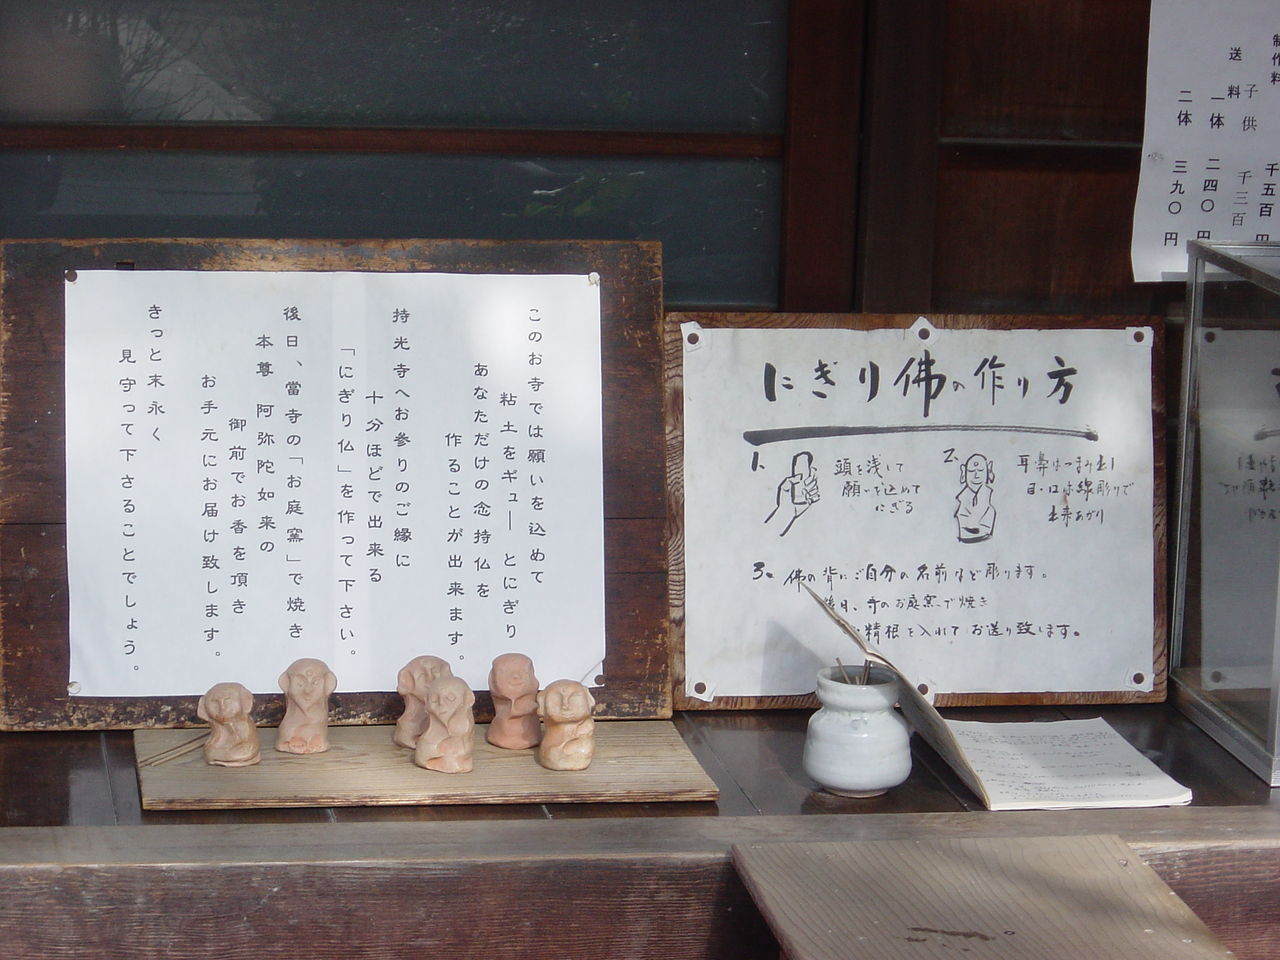 このお寺では願いを込めて
粘土をギュ―とにぎり
あなただけの念持仏を
作ることが出来ます。
持光寺へお参りのご縁に
十分ほどで出来る
「にぎり仏」を作って下さい。
後日、當寺の「お庭窯」で焼き
本尊 阿弥陀如来の
御前でお香を頂き
お手元にお届け致します。
きっと末永く
見守って下さることでしょう。
にぎり佛の作り方
1.
頭を浅して
願いを込めて
にぎる
2.
耳鼻はつまみ出し
目・口は線彫りで
出来あがり
3. 佛の背にご自分の名前など彫ります。
後日、寺のお庭窯で焼き
精根を入れてお送り致します。
制作料
千五百円
子供 千三百
送料
一体 二四〇円
二体 三九〇円